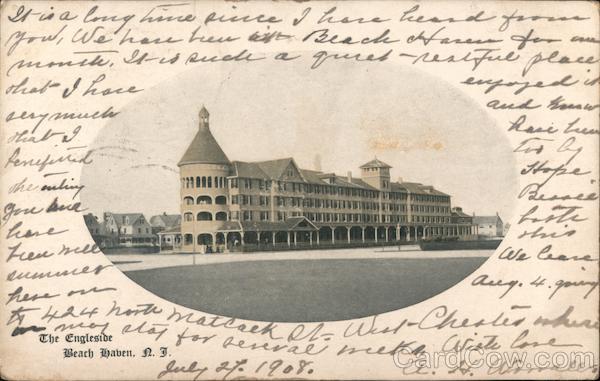 It is a long time since I have heard from
you, We have been at Beach Haven for one
month. It is such a quiet-restful place
that I have
enjoyed it
very much
and know
that I
have been
benefitted
too by
the
Hope
You
Bernice
have
both
been well
this
summer
We leave
here on
Aug. 4. going
to 424 North Matlack St. West-Chester where
may stay for several weeks. With love
The Engleside
Beach Haven. N. J.
July 27. 1908.
CardCow.com